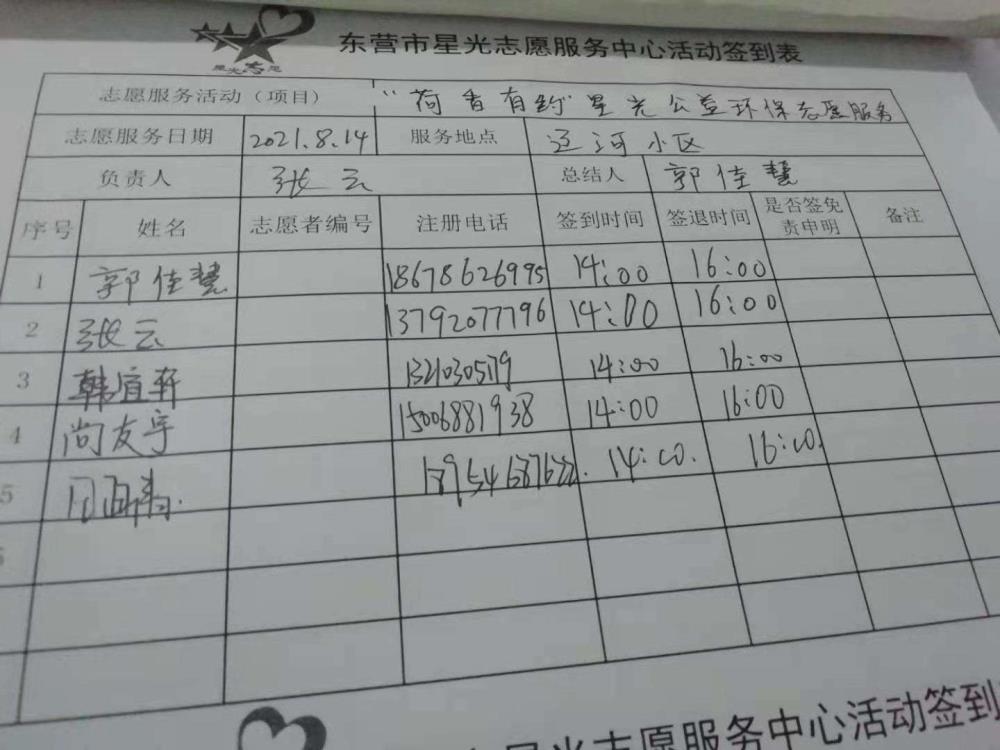 东营市星光志愿服务中心活动签到表
志愿服务活动（项目） “荷香有约”星光公益环保志愿服务
志愿服务日期 2021.8.14 服务地点 辽河小区
负责人 张云 总结人 郭佳慧
序号 姓名 志愿者编号 注册电话 签到时间 签退时间 是否签免责申明 备注
1 郭佳慧 18678626995 14:00 16:00
2 张云 13792077796 14:00 16:00
3 韩宜轩 14:00 16:00
4 尚友宇 15006881938 14:00 16:00
5 14:00. 16:00.
星光志愿服务中心活动签到